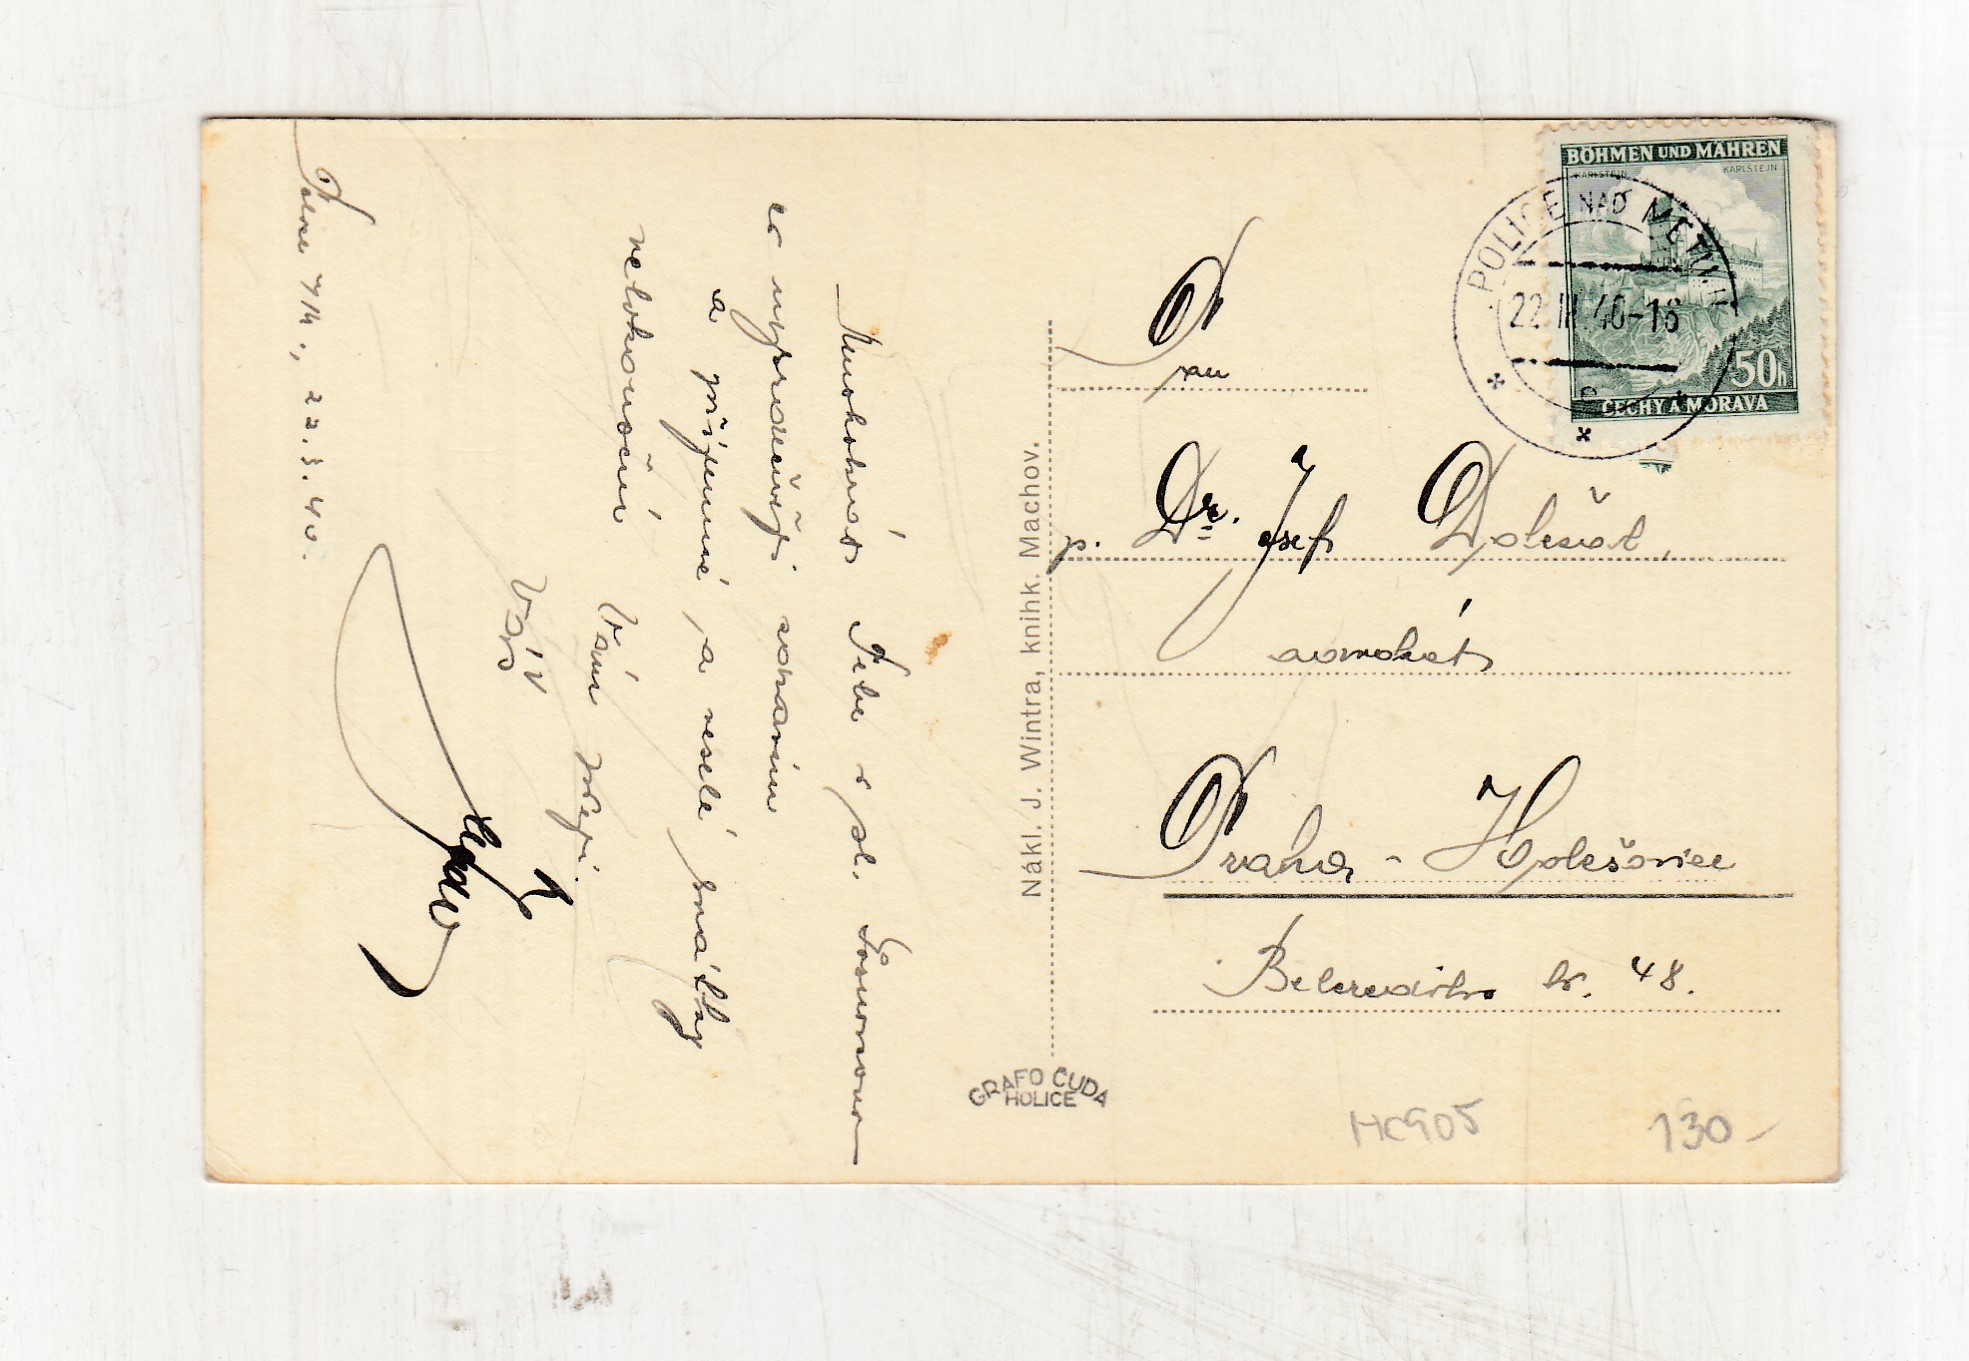 Police n/M., 22.3.40.
Mnohokrát Tebe i sl.
co nejsrdečněji zdravím
a příjemné, a veselé svátky
velikonoční Vám přeji.
Váš
Nákl. J. Wintra, knihk. Machov.
GRAFO ČUDA
HOLICE
BÖHMEN UND MÄHREN
KARLSTEIN KARLŠTEJN
50h
ČECHY A MORAVA
POLICE NAD METUJÍ
22 III 40-16
Pan
p. Dr. Josef Doležal,
advokát
Praha - Holešovice
Belcrediho tř. 48.
HC905 130-